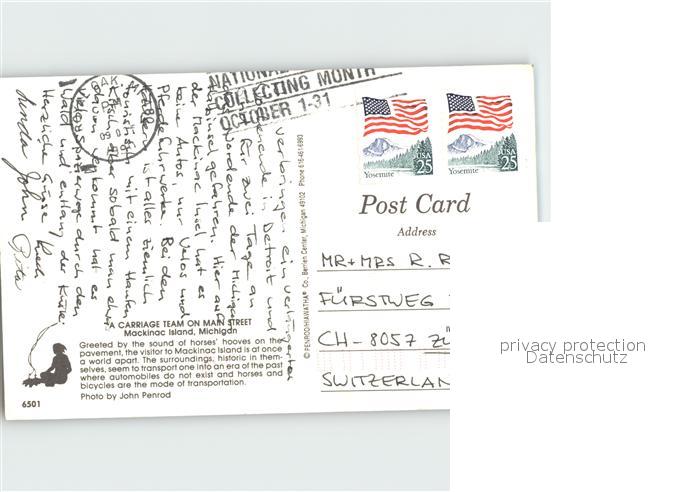 NATIONAL
COLLECTING MONTH
OCTOBER 1-31
verbringen ein verlängertes
in Detroit und
für zwei Tage an
Nordende der Michigan
gefahren. Hier auf
der Mackinac Insel hat es
keine Autos, nur Velos und
Pferdefuhrwerke. Bei den
ist alles ziemlich
mit einem Haufen
aber sobald man etwas
davon kommt hat es
durch den
Wald und entlang der Küste.
Herzliche Grüsse Ruedi
Linda John Rita
A CARRIAGE TEAM ON MAIN STREET
Mackinac Island, Michigan
Greeted by the sound of horses' hooves on the
pavement, the visitor to Mackinac Island is at once
a world apart. The surroundings, historic in them-
selves, seem to transport one into an era of the past
where automobiles do not exist and horses and
bicycles are the mode of transportation.
Photo by John Penrod
6501
© PENROD/HIAWATHA® Co., Berrien Center, Michigan 49102 Phone 616-461-6993
USA
25
Yosemite
USA
25
Yosemite
Post Card
Address
MR+MRS R. R
FÜRSTWEG
CH-8057 ZÜ
SWITZERLAN
privacy protection
Datenschutz